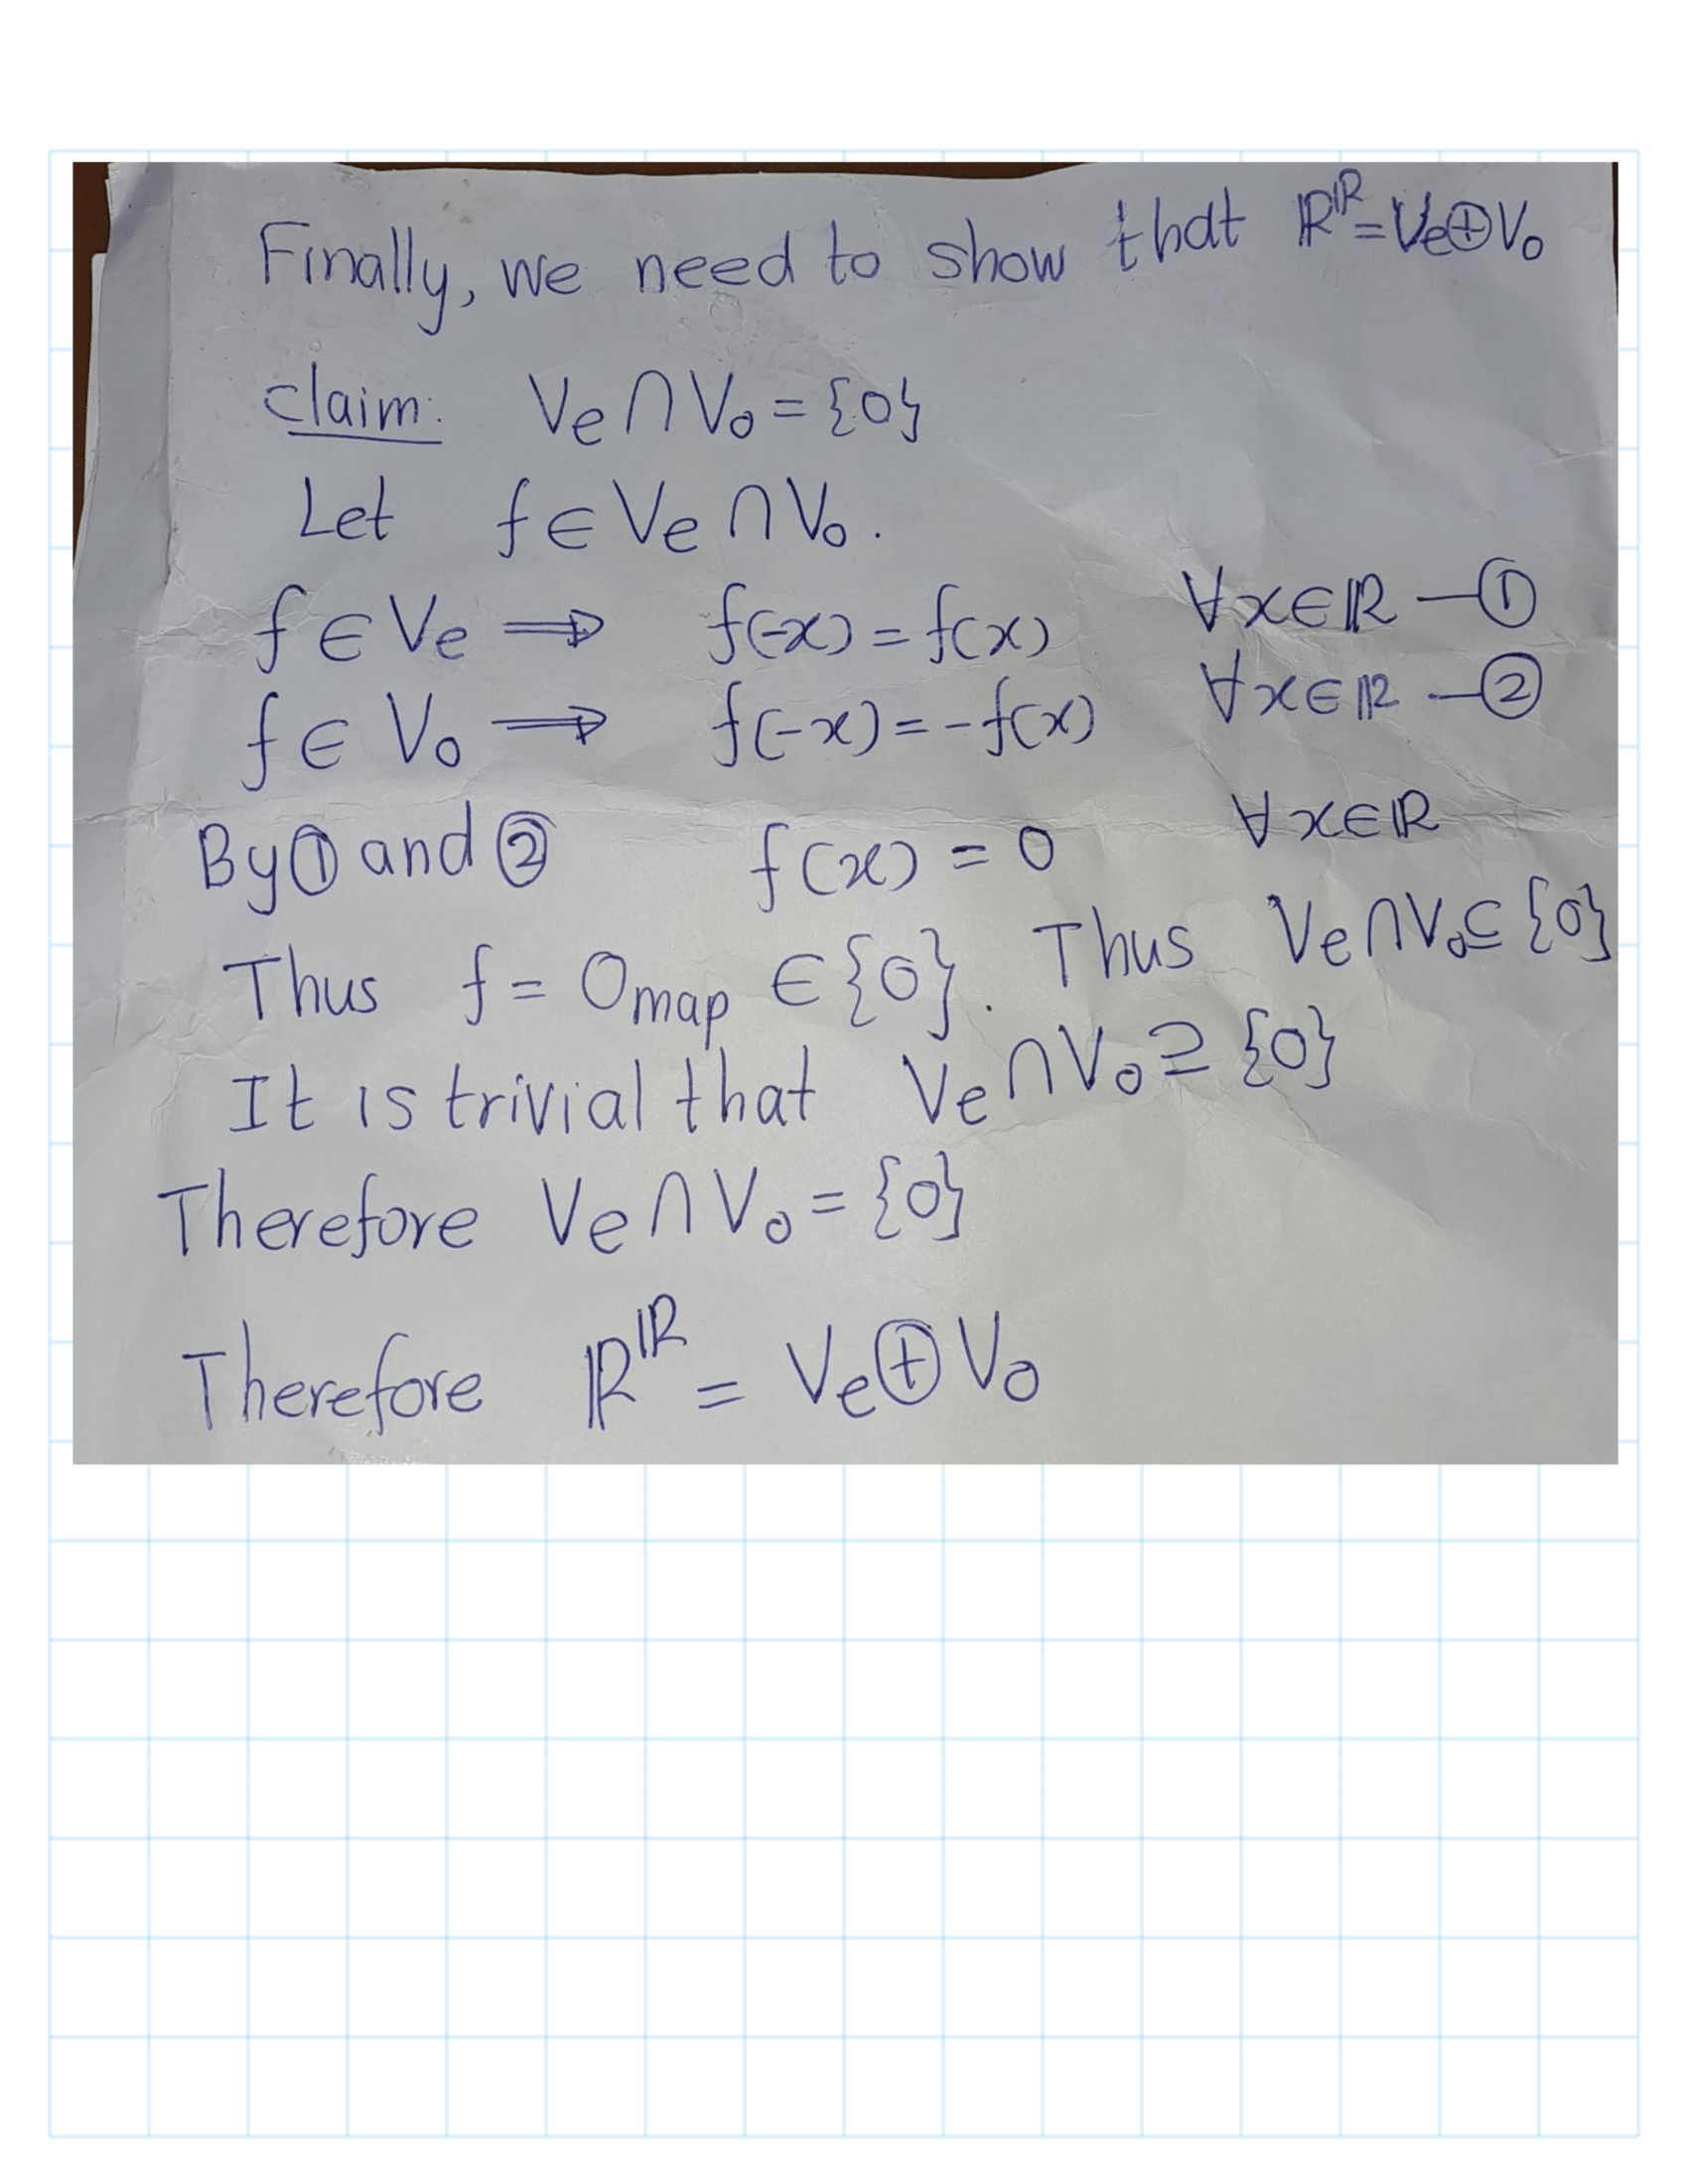 Finally, we need to show that ℝ^ℝ = Ve ⊕ Vo
claim: Ve ∩ Vo = {0}
Let f ∈ Ve ∩ Vo.
f ∈ Ve ⟹ f(-x) = f(x) ∀x∈ℝ —①
f ∈ Vo ⟹ f(-x) = -f(x) ∀x∈ℝ —②
By ① and ② f(x) = 0 ∀x∈ℝ
Thus f = 0map ∈ {0}. Thus Ve ∩ Vo ⊆ {0}
It is trivial that Ve ∩ Vo ⊇ {0}
Therefore Ve ∩ Vo = {0}
Therefore ℝ^ℝ = Ve ⊕ Vo